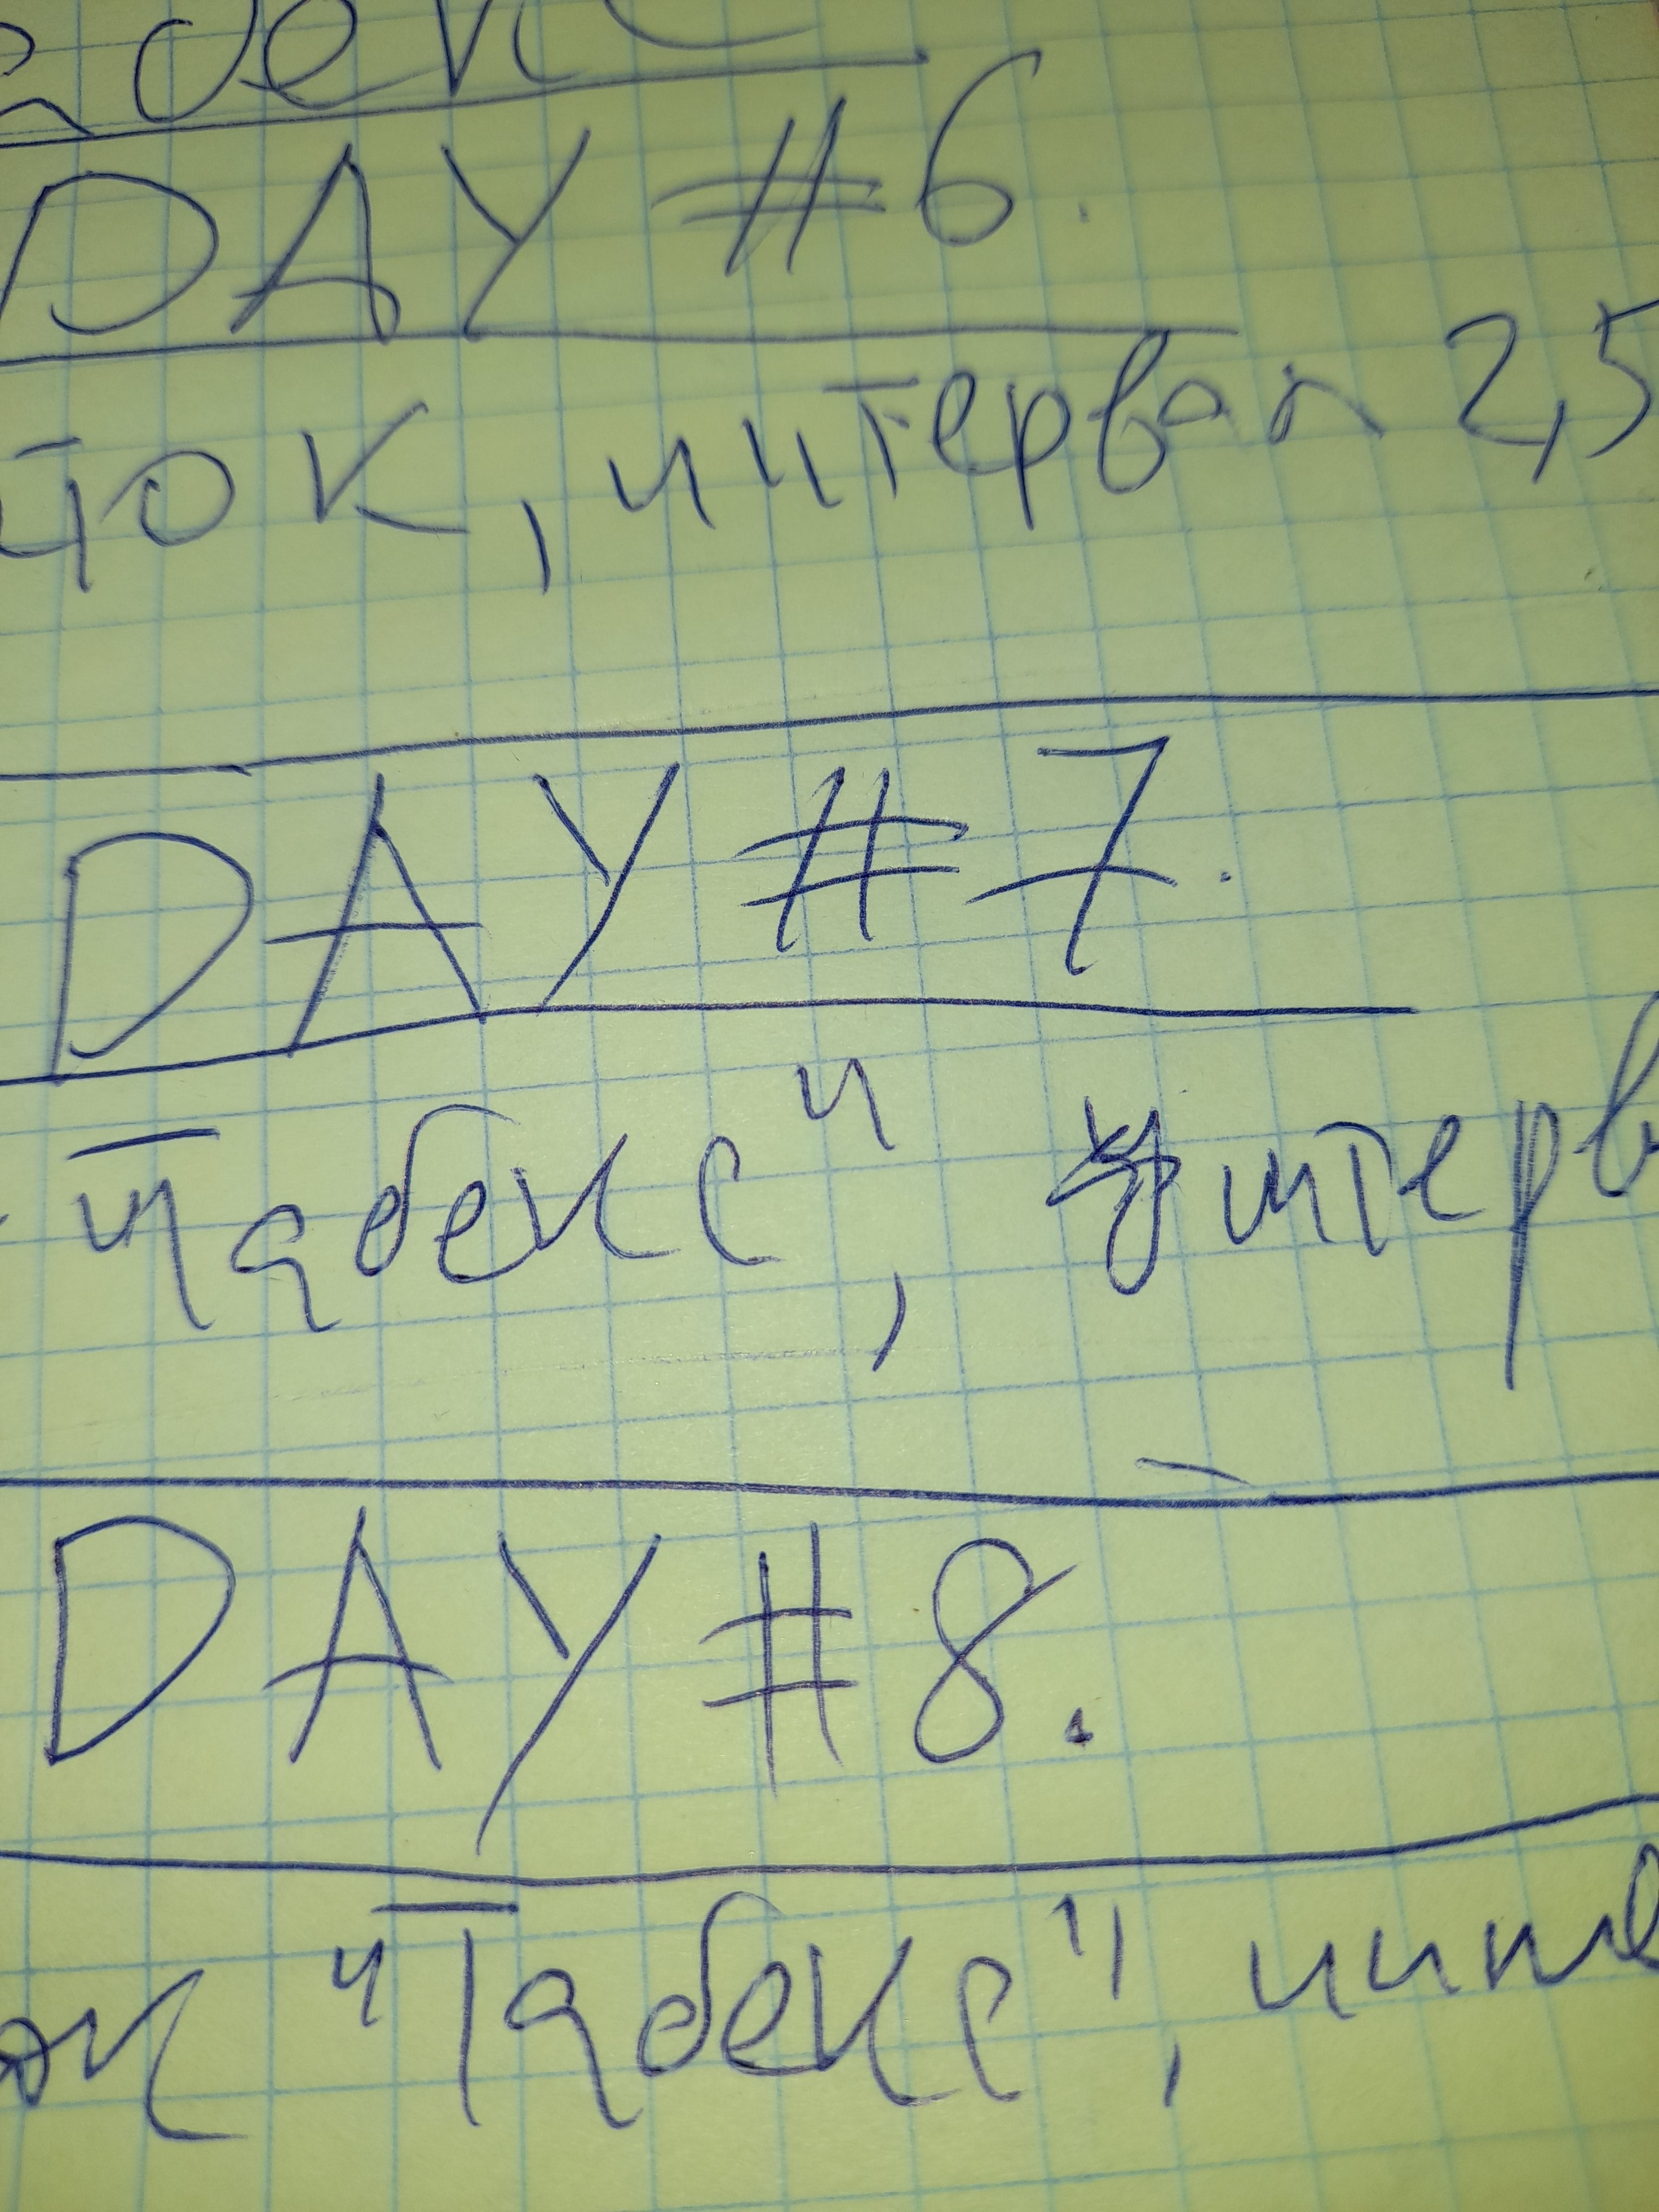 DAY #6.
ток, интервал 2,5
DAY #7.
"Табекс", интерв
DAY #8.
ок "Табекс", инте